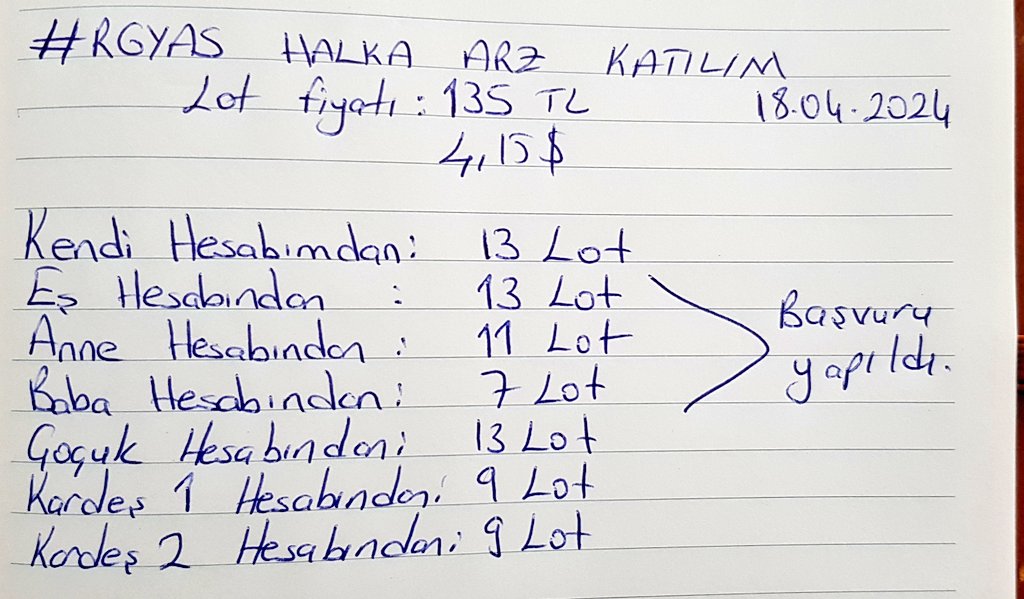 #RGYAS HALKA ARZ KATILIM
Lot fiyatı: 135 TL 18.04.2024
4,15$
Kendi Hesabımdan: 13 Lot
Eş Hesabından : 13 Lot
Anne Hesabından : 11 Lot
Baba Hesabından: 7 Lot
Çoçuk Hesabından: 13 Lot
Kardeş 1 Hesabından: 9 Lot
Kardeş 2 Hesabından: 9 Lot
Başvuru
yapıldı.